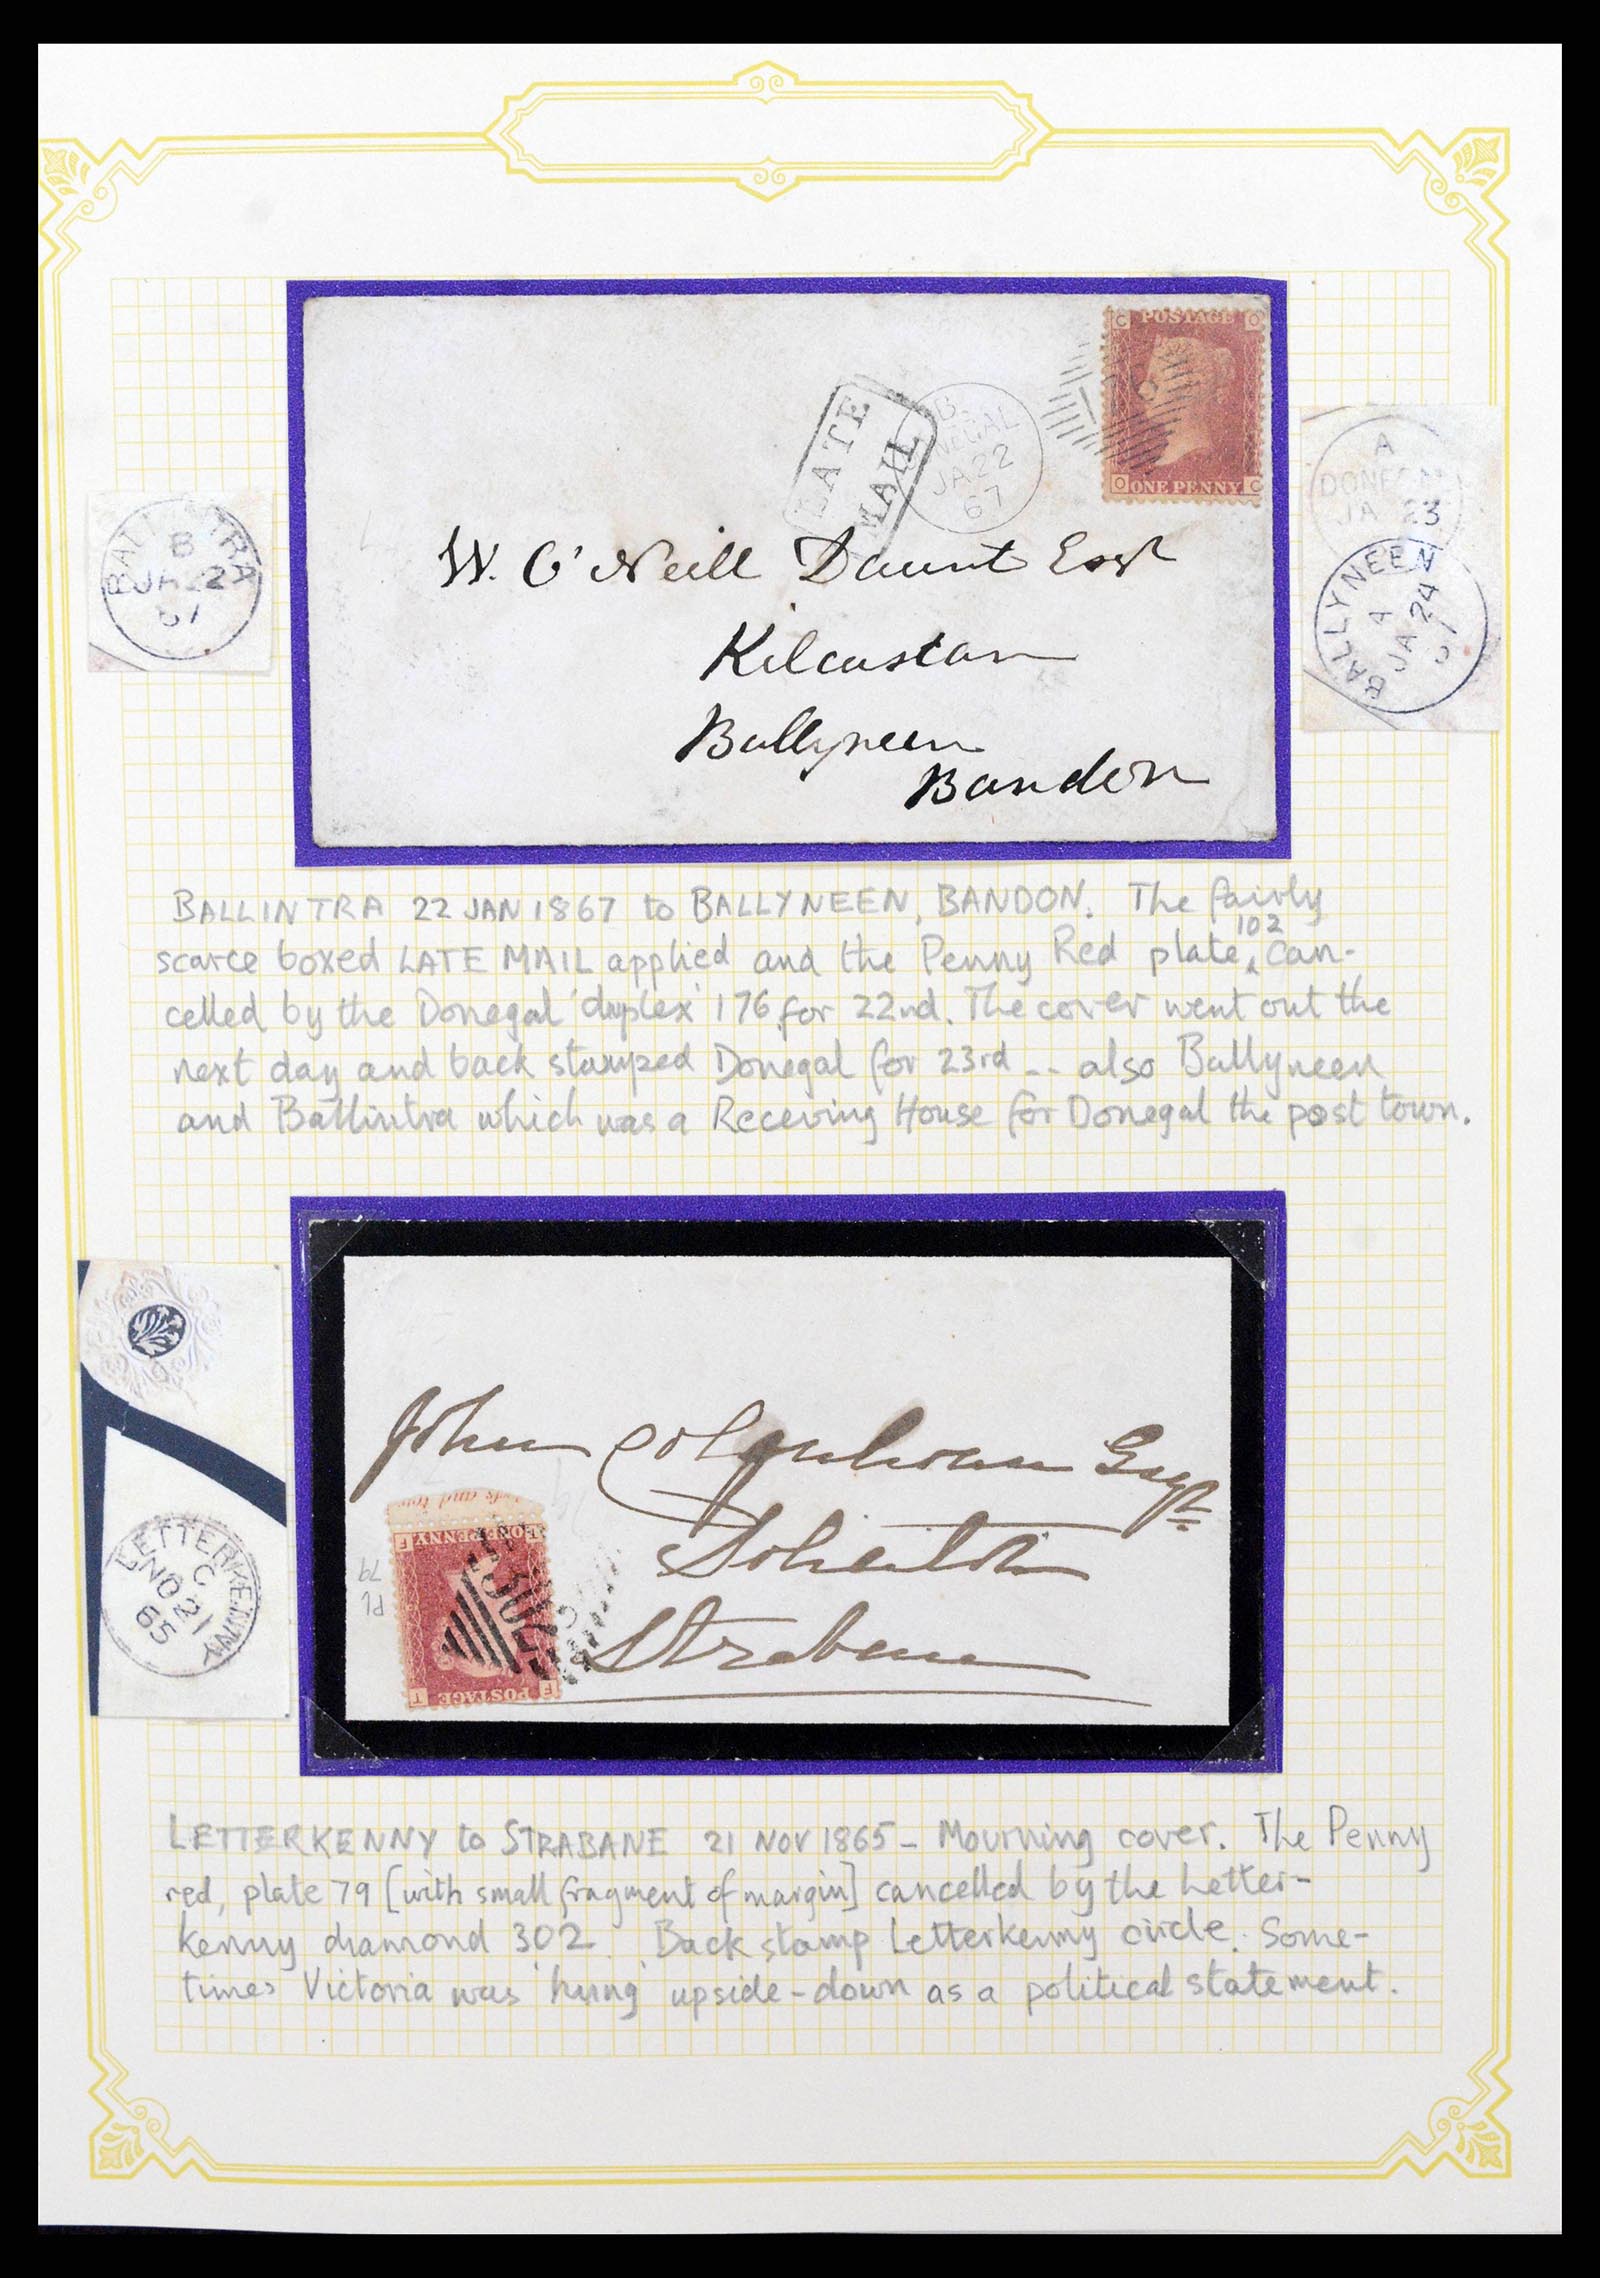 C POSTAGE O
O ONE PENNY C
LATE
MAIL
B
NEGAL
JA 22
67
W. O'Neill Daunt Esqr
Kilcascan
Ballyneen
Bandon
BALLINTRA
B
JA 22
67
A
DONEGAL
JA 23
BALLYNEEN
A
JA 24
67
BALLINTRA 22 JAN 1867 to BALLYNEEN, BANDON. The fairly
scarce boxed LATE MAIL applied and the Penny Red plate 102 can-
celled by the Donegal 'duplex' 176 for 22nd. The cover went out the
next day and back stamped Donegal for 23rd -- also Ballyneen
and Ballintra which was a Receving House for Donegal the post town.
John Colquhoun Esqr
Solicitor
Strabane
PL 79
F ONE PENNY T
T POSTAGE F
302
LETTERKENNY
C
NO 21
65
LETTERKENNY to STRABANE 21 NOV 1865 - Mourning cover. The Penny
red, plate 79 [with small fragment of margin] cancelled by the Letter-
kenny diamond 302. Back stamp Letterkenny circle. Some-
times Victoria was 'hung' upside-down as a political statement.